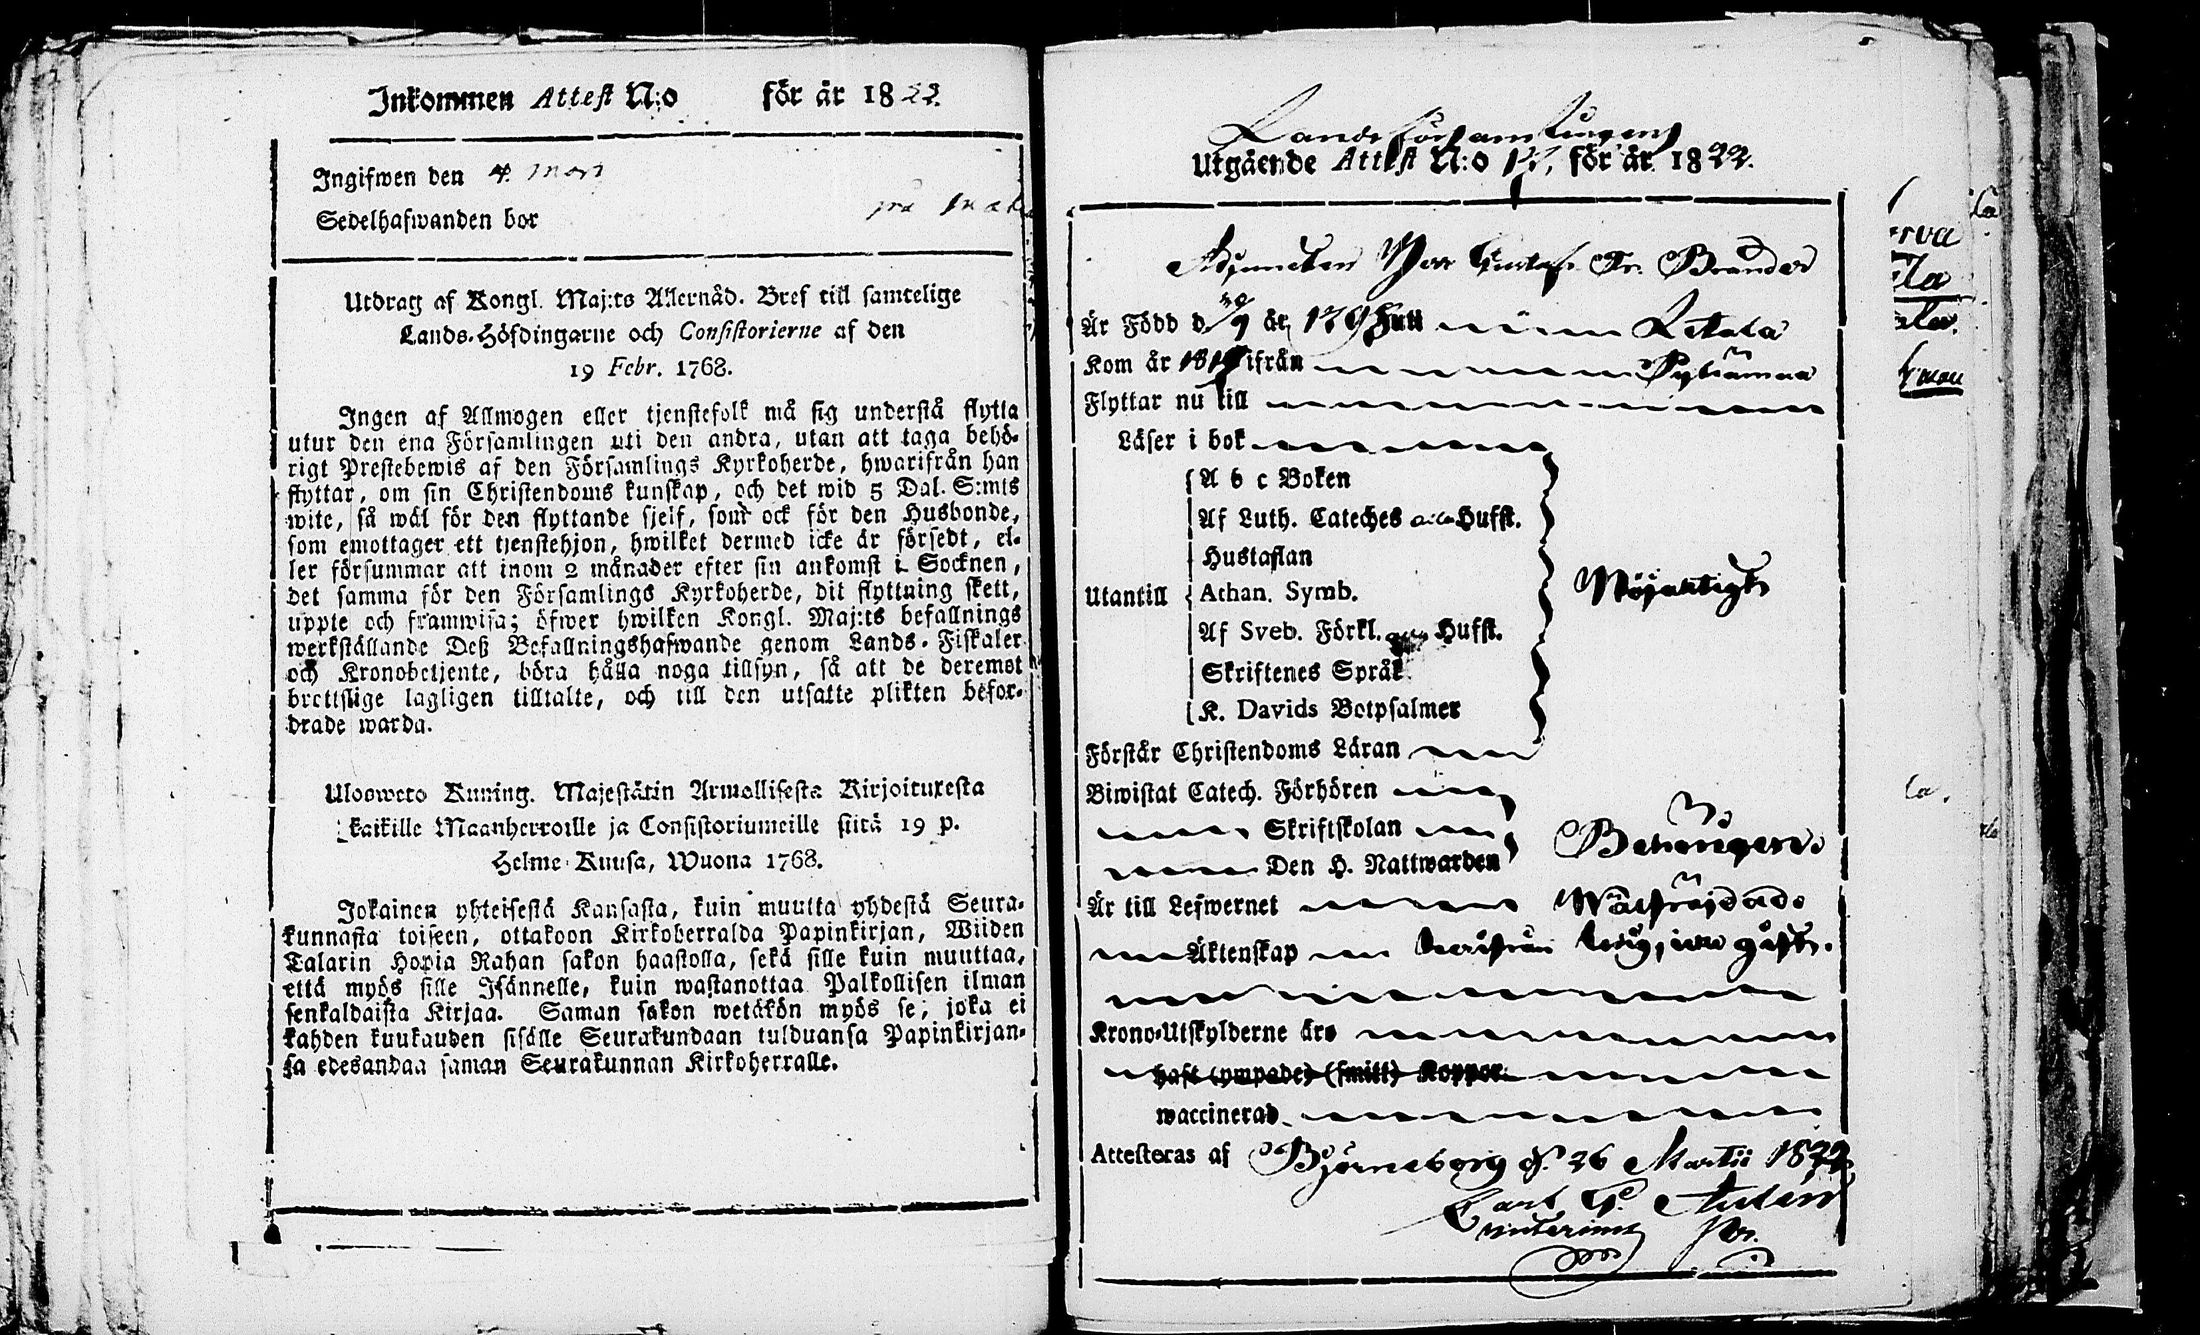 Inkommen Attest N:o för år 1822.
Ingifwen den 4. Maij
Sedelhafwanden bor på
Utdrag af Kongl. Maj:ts Allernåd. Bref till samtelige
Lands-Höfdingarne och Consistorierne af den
19 Febr. 1768.
Ingen af Allmogen eller tjenstefolk må sig understå flytta
utur den ena Församlingen uti den andra, utan att taga behö-
rigt Prestebewis af den Församlings Kyrkoherde, hwarifrån han
flyttar, om sin Christendoms kunskap, och det wid 5 Dal. S:mts
wite, så wäl för den flyttande sjelf, som ock för den Husbonde,
som emottager ett tjenstehjon, hwilket dermed icke är försedt, el-
ler försummar att inom 2 månader efter sin ankomst i Socknen,
det samma för den Församlings Kyrkoherde, dit flyttning skett,
uppte och framwisa; öfwer hwilken Kongl. Maj:ts befallnings
werkställande Deß Befallningshafwande genom Lands-Fiskaler
och Kronobetjente, böra hålla noga tillsyn, så att de deremot
brottslige lagligen tilltalte, och till den utsatte plikten befor-
drade warda.
Ulosweto Kuning. Majestätin Armollisesta Kirjoituxesta
kaikille Maanherroille ja Consistoriumeille siitä 19 p.
Helme-Kuusa, Wuona 1768.
Jokainen yhteisestä Kansasta, kuin muutta yhdestä Seura-
kunnasta toiseen, ottakoon Kirkoherralda Papinkirjan, Wiiden
Talarin Hopia Rahan sakon haastolla, sekä sille kuin muuttaa,
että myös sille Isännelle, kuin wastanottaa Palkollisen ilman
senkaldaista Kirjaa. Saman sakon wetäkön myös se, joka ei
kahden kuukauden sisälle Seurakundaan tulduansa Papinkirjan-
sa edesandaa saman Seurakunnan Kirkoherralle.
Landsförsamlingens
Utgående Attest N:o för år 1822.
Adjuncten Herr Gustaf Fr. Brander
Är Född d. 29/9 år 179 Letala
Kom år 181 ifrån Pyhämaa
Flyttar nu till
Läser i bok
A b c Boken
Af Luth. Cateches alla Hufst.
Hustaflan
Utantill Athan. Symb. Nöjaktigt
Af Sveb. Förkl. alla Hufst.
Skriftenes Språk
K. Davids Botpsalmer
Förstår Christendoms Läran
Biwistat Catech. Förhören
Skriftskolan Behörigen
Den H. Nattwarden
Är till Lefwernet Wälfräjdad
Äktenskap härifrån ledig, icke gift.
Krono-Utskylderne äro
haft (ympade) (smitt) Koppor
waccinerad
Attesteras af Björneborg d. 26 Martii 1822.
Carl G.
interims Pr.